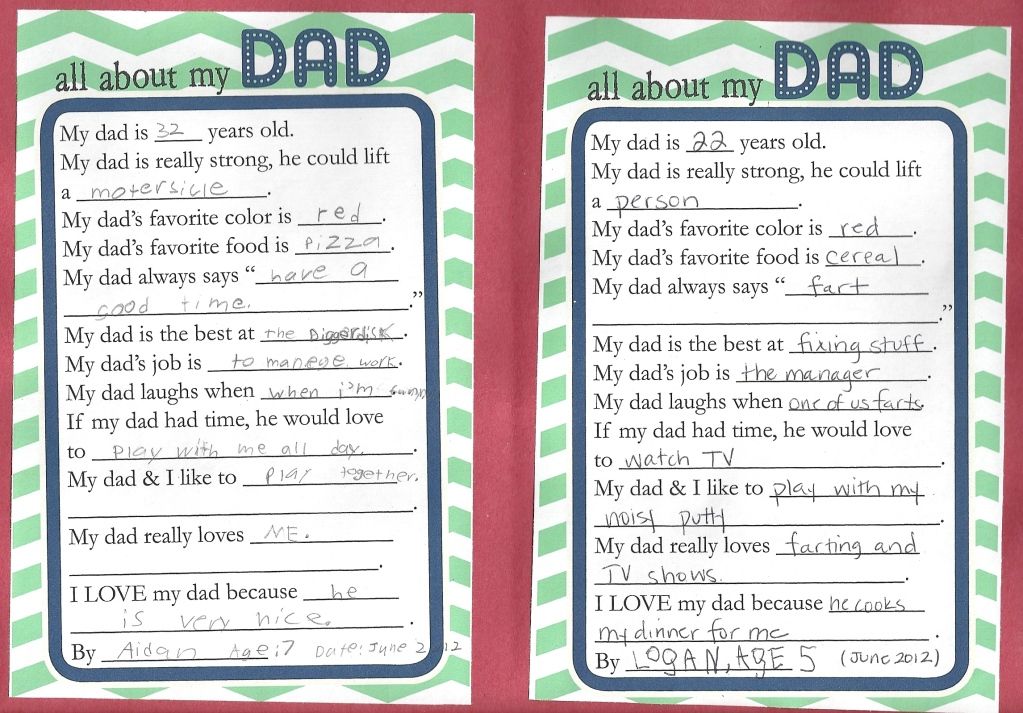 all about my DAD
My dad is 32 years old.
My dad is really strong, he could lift
a motersicle.
My dad's favorite color is red.
My dad's favorite food is pizza.
My dad always says "have a
good time."
My dad is the best at the.
My dad's job is to manege work.
My dad laughs when when i'm funny
If my dad had time, he would love
to play with me all day.
My dad & I like to play together.
My dad really loves ME.
I LOVE my dad because he
is very nice.
By Aidan Age:7 Date: June 2012
all about my DAD
My dad is 22 years old.
My dad is really strong, he could lift
a person.
My dad's favorite color is red.
My dad's favorite food is cereal.
My dad always says "fart
."
My dad is the best at fixing stuff.
My dad's job is the manager.
My dad laughs when one of us farts.
If my dad had time, he would love
to watch TV.
My dad & I like to play with my
noisy putty.
My dad really loves farting and
TV shows.
I LOVE my dad because he cooks
my dinner for me.
By LOGAN, AGE 5 (JUNE 2012)